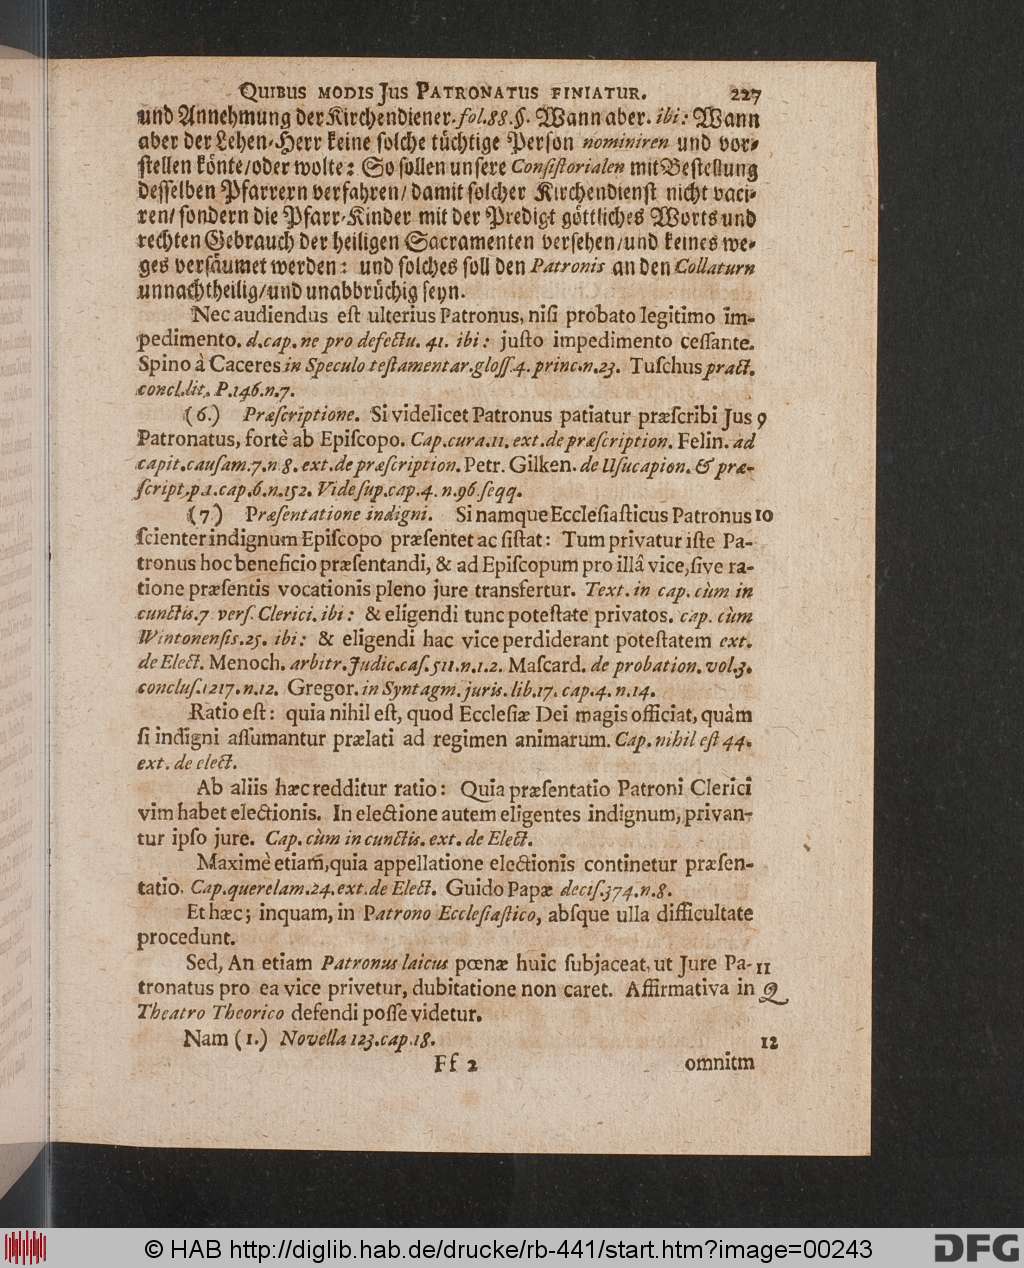 Quibus modis Jus Patronatus finiatur. 227
und Annehmung der Kirchendiener. fol. 88. §. Wann aber. ibi: Wann
aber der Lehen-Herr keine solche tüchtige Person nominiren und vor-
stellen könte/oder wolte: So sollen unsere Consistorialen mit Bestellung
desselben Pfarrern verfahren/ damit solcher Kirchendienst nicht vaci-
ren/ sondern die Pfarr-Kinder mit der Predigt göttliches Worts und
rechten Gebrauch der heiligen Sacramenten versehen/und keines we-
ges versäumet werden: und solches soll den Patronis an den Collaturn
unnachtheilig/und unabbrüchig seyn.
Nec audiendus eſt ulterius Patronus, niſi probato legitimo im-
pedimento. d. cap. ne pro defectu. 41. ibi: juſto impedimento ceſſante.
Spino à Caceres in Speculo teſtamentar. gloſſ. 4. princ. n. 23. Tuſchus pract.
concl. lit. P. 146. n. 7.
(6.) Præſcriptione. Si videlicet Patronus patiatur præſcribi Jus 9
Patronatus, fortè ab Epiſcopo. Cap. cura. 11. ext. de præſcription. Felin. ad
capit. cauſam. 7. n 8. ext. de præſcription. Petr. Gilken. de Uſucapion. & præ-
ſcript. p. 1. cap. 6. n. 152. Vide ſup. cap. 4. n. 96 ſeqq.
(7) Præſentatione indigni. Si namque Eccleſiaſticus Patronus 10
ſcienter indignum Epiſcopo præſentet ac ſiſtat: Tum privatur iſte Pa-
tronus hoc beneficio præſentandi, & ad Epiſcopum pro illâ vice, ſive ra-
tione præſentis vocationis pleno jure transfertur. Text. in cap. cùm in
cunctis. 7 verſ. Clerici. ibi: & eligendi tunc poteſtate privatos. cap. cùm
Wintonenſis. 25. ibi: & eligendi hac vice perdiderant poteſtatem ext.
de Elect. Menoch. arbitr. Judic. caſ. 511. n. 1. 2. Maſcard. de probation. vol. 3.
concluſ. 1217. n. 12. Gregor. in Syntagm. juris. lib. 17. cap. 4. n. 14.
Ratio eſt: quia nihil eſt, quod Eccleſiæ Dei magis officiat, quàm
ſi indigni aſſumantur prælati ad regimen animarum. Cap. nihil eſt 44.
ext. de elect.
Ab aliis hæc redditur ratio: Quia præſentatio Patroni Clerici
vim habet electionis. In electione autem eligentes indignum, privan-
tur ipſo jure. Cap. cùm in cunctis. ext. de Elect.
Maximè etiam, quia appellatione electionis continetur præſen-
tatio. Cap. querelam. 24. ext. de Elect. Guido Papæ deciſ. 374. n. 8.
Et hæc; inquam, in Patrono Eccleſiaſtico, abſque ulla difficultate
procedunt.
Sed, An etiam Patronus laicus pœnæ huic ſubjaceat, ut Jure Pa- 11
tronatus pro ea vice privetur, dubitatione non caret. Affirmativa in Q
Theatro Theorico defendi poſſe videtur.
Nam (1.) Novella 123. cap. 18. 12
Ff 2 omnitm
© HAB http://diglib.hab.de/drucke/rb-441/start.htm?image=00243 DFG